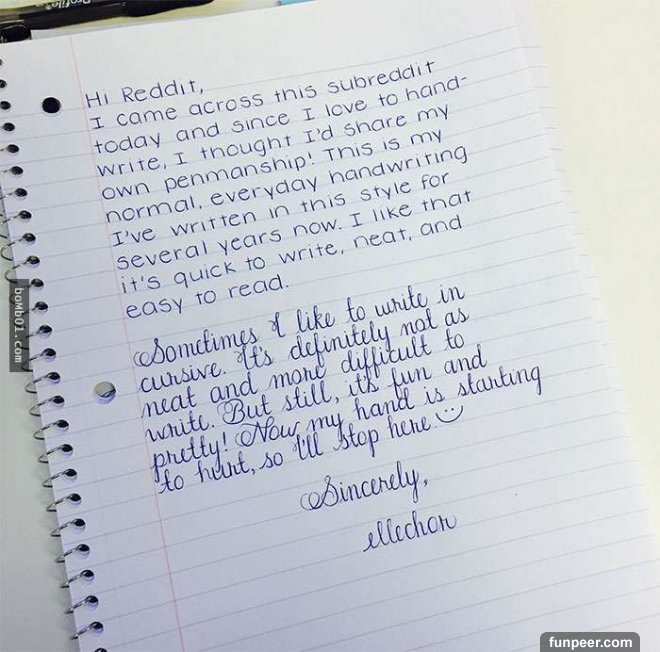 Hi Reddit,
I came across this subreddit
today and since I love to hand-
write, I thought I'd share my
own penmanship! This is my
normal, everyday handwriting
I've written in this style for
several years now. I like that
it's quick to write, neat, and
easy to read.
Sometimes I like to write in
cursive. It's definitely not as
neat and more difficult to
write. But still, it's fun and
pretty! Now my hand is starting
to hurt, so I'll stop here.
Sincerely,
ellechor
bomb01.com
funpeer.com